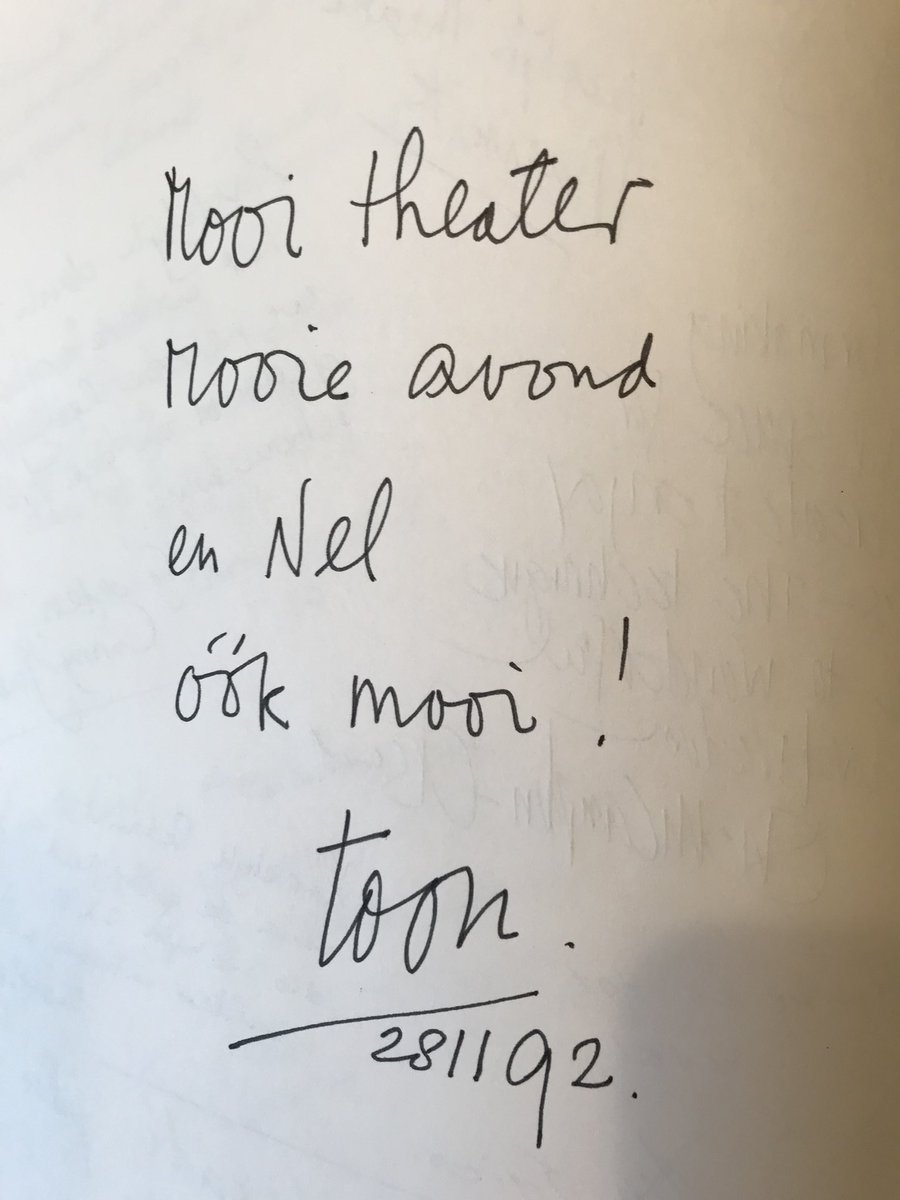 Mooi theater
Mooie avond
en Nel
óók mooi !
toon.
281192.